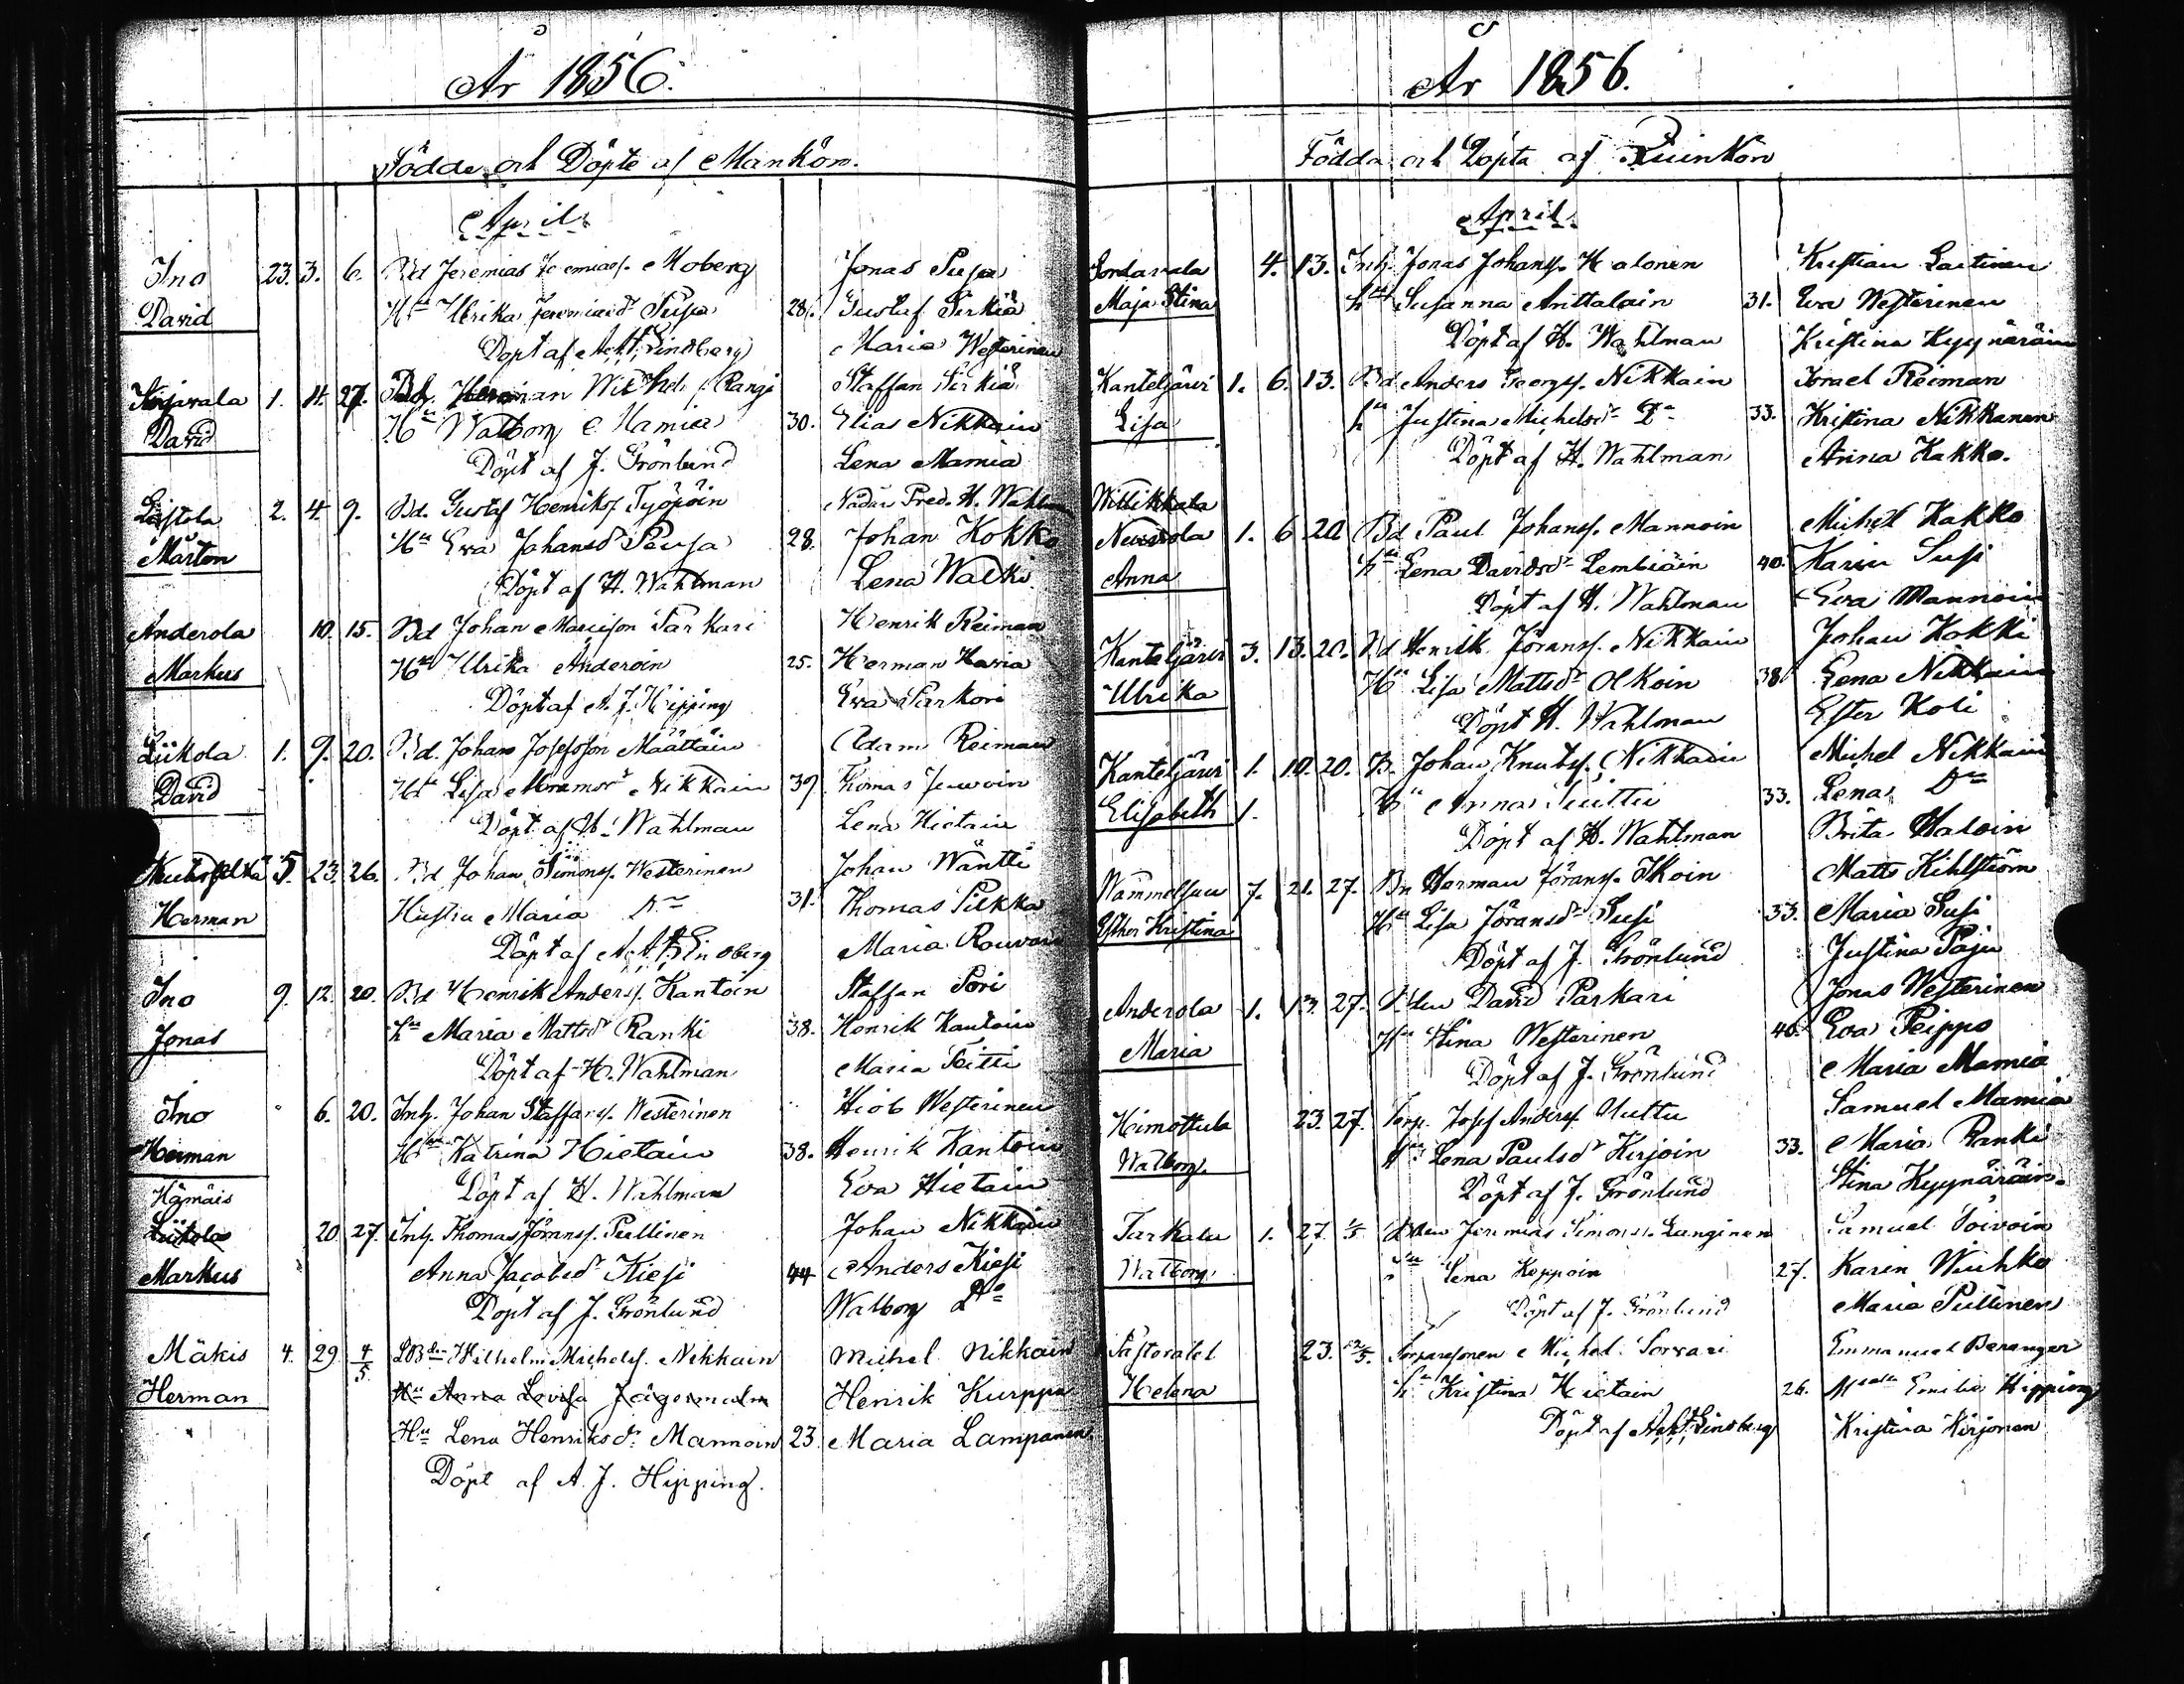 År 1856.
Födde och Döpte af Mankön.
April
Ino 23. 3. 6. Bd Jeremias Jeremiass. Moberg Jonas Pusa
David Hu Ulrika Jeremiaed. Pusa 28. Gustaf Pirkiä
Döpt af Lindberg Maria Westerinen
1. 4. 27. Bd. Herman Ranga Staffan Pirkiä
David Hu Walborg Mamia 30. Elias Nikkain
Döpt af J. Grönlund Lena Mamia
Liistola 2. 4. 9. Bd. Gustaf Henrikss. Työpöin Pred. H. Wahlman
Mårten Hu Ewa Johansdr Pausa 28. Johan Kokko
Döpt af H. Wahlman Lena Walki
Anderola 10. 15. Bd Johan Parkari Henrik Reiman
Markus Hu Ulrika Anderoin 25. Herman Havia
Döpt af A. J. Hipping Ewa Parkari
Liikola 1. 9. 20. Bd. Johan Josefsson Määttäin Adam Reiman
David Hu Lisa Nikkain 39 Thomas
Döpt af H. Wahlman Lena Hietain
5. 23. 26. Bd Johan Simonss. Westerinen Johan Wäntti
Herman Hustru Maria Do 31. Thomas Pilkka
Döpt af Lindberg Maria
Ino 9. 12. 20. Bd Henrik Anderss. Kantoin Staffan Pori
Jonas hu Maria Mattsdr Ranki 38. Henrik Kantoin
Döpt af H. Wahlman Maria
Ino 6. 20. Inh. Johan Staffanss. Westerinen Hiob Westerinen
Herman Hu Katrina Hietain 38. Henrik Kantoin
Döpt af H. Wahlman Eva Hietain
Hämäis
Liikola 20 27. Inh. Thomas Jöranss. Pullinen Johan Nikkain
Markus Anna Jacobsdr Kiesi 44 Anders Kiesi
Döpt af J. Grönlund Walborg Do
Mäkis 4. 29 4/5 LBdn Wilhelm Michelss. Nikkain Michel Nikkain
Herman Hu Anna Lovisa Jägermalm Henrik Kurppa
Hu Lena Henriksdr. Mannoin 23. Maria Lampanen
Döpt af A. J. Hipping.
År 1856.
Födda och Döpta af Quinkön
April.
Sordavala 4. 13. Inh. Jonas Johanss. Halonen Kristian Laitinen
Maja Stina hu Susanna Anttalain 31. Eva Westerinen
Döpt af H. Wahlman Kristina Kyynäräin
Kanteljärvi 1. 6. 13. Bd. Anders Georgs. Nikkain Israel Reiman
Lisa hu Justina Michelsdr Do 33. Kristina Nikkanen
Döpt af H. Wahlman Anna Kakko.
Wittikkala
1. 6 20 Bd Paul Johanss. Mannoin Michel Kakko
Anna hu Lena Davidsdr Lembiäin 40. Karin Susi
Döpt af H. Wahlman Eva Mannoin
Kanteljärvi 3. 13. 20. Bd Henrik Jöranss. Nikkain Johan Kokki
Ulrika Hu Lisa Mattsdr Olkoin 38. Lena Nikkain
Döpt H. Wahlman Ester Koli
Kanteljärvi 1. 10. 20. B. Johan Knutss. Nikkain Michel Nikkain
Elisabeth 1. Hu Anna 33. Lena Do
Döpt af H. Wahlman Brita Haloin
Wammelsuu 7. 21. 27. Bn Herman Jöranss. Ikoin Matts Kihlström
Esther Kristina Hu Lisa Jöransdr Susi 33. Maria Susi
Döpt af J. Grönlund Justina Paju
Anderola 1. 13. 27. David Parkari Jonas Westerinen
Maria Hu Stina Westerinen 40. Eva Peippo
Döpt af J. Grönlund Maria Mamia
Himottula 23. 27. Torp. Josef Anderss. Uuttu Samuel Mamia
Walborg hu Lena Paulsdr Kirjoin 33. Maria Ranki
Döpt af J. Grönlund Stina Kyynäräin.
Tarkala 1. 27. 1/5 Jeremias Simonss. Langinen Samuel Toivoin
Walborg hu Lena Koppoin 27. Karin Wiuhko
Döpt af J. Grönlund Maria Pullinen
Pastoratet 23. /5. Michel Sorvari Emmanuel Beranger
Helena hu Kristina Hietain 26. Emilie Hipping
Döpt af Lindberg Kristina Kirjonen